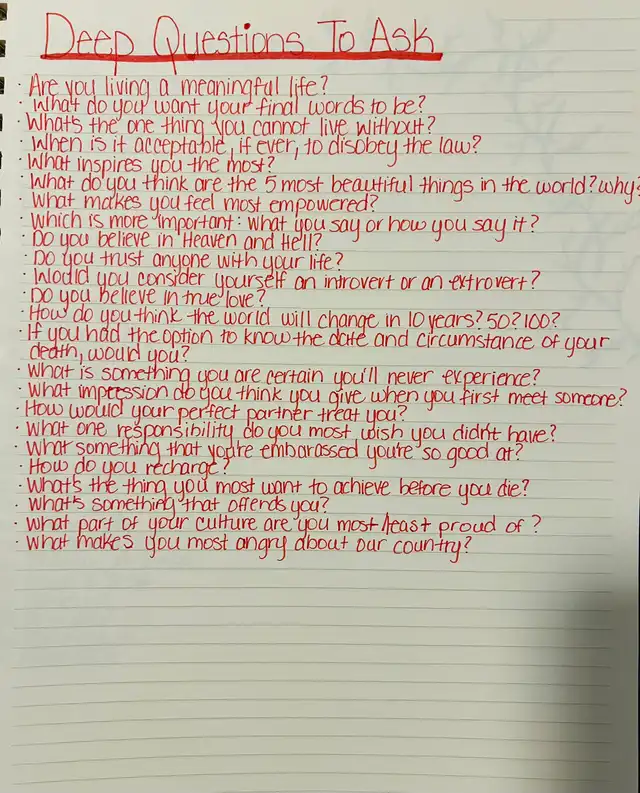 Deep Questions To Ask
· Are you living a meaningful life?
· What do you want your final words to be?
What's the one thing you cannot live without?
· When is it acceptable, if ever, to disobey the law?
· What inspires you the most?
· What do you think are the 5 most beautiful things in the world? why?
· What makes you feel most empowered?
· Which is more important: what you say or how you say it?
· Do you believe in Heaven and Hell?
· Do you trust anyone with your life?
· Would you consider yourself an introvert or an extrovert?
Do you believe in true love?
· How do you think the world will change in 10 years? 50? 100?
· If you had the option to know the date and circumstance of your
death, would you?
· What is something you are certain you'll never experience?
· What impression do you think you give when you first meet someone?
· How would your perfect partner treat you?
· What one responsibility do you most wish you didn't have?
· What something that you're embarassed you're so good at?
· How do you recharge?
· What's the thing you most want to achieve before you die?
· What's something that offends you?
· What part of your culture are you most/least proud of?
· What makes you most angry about our country?